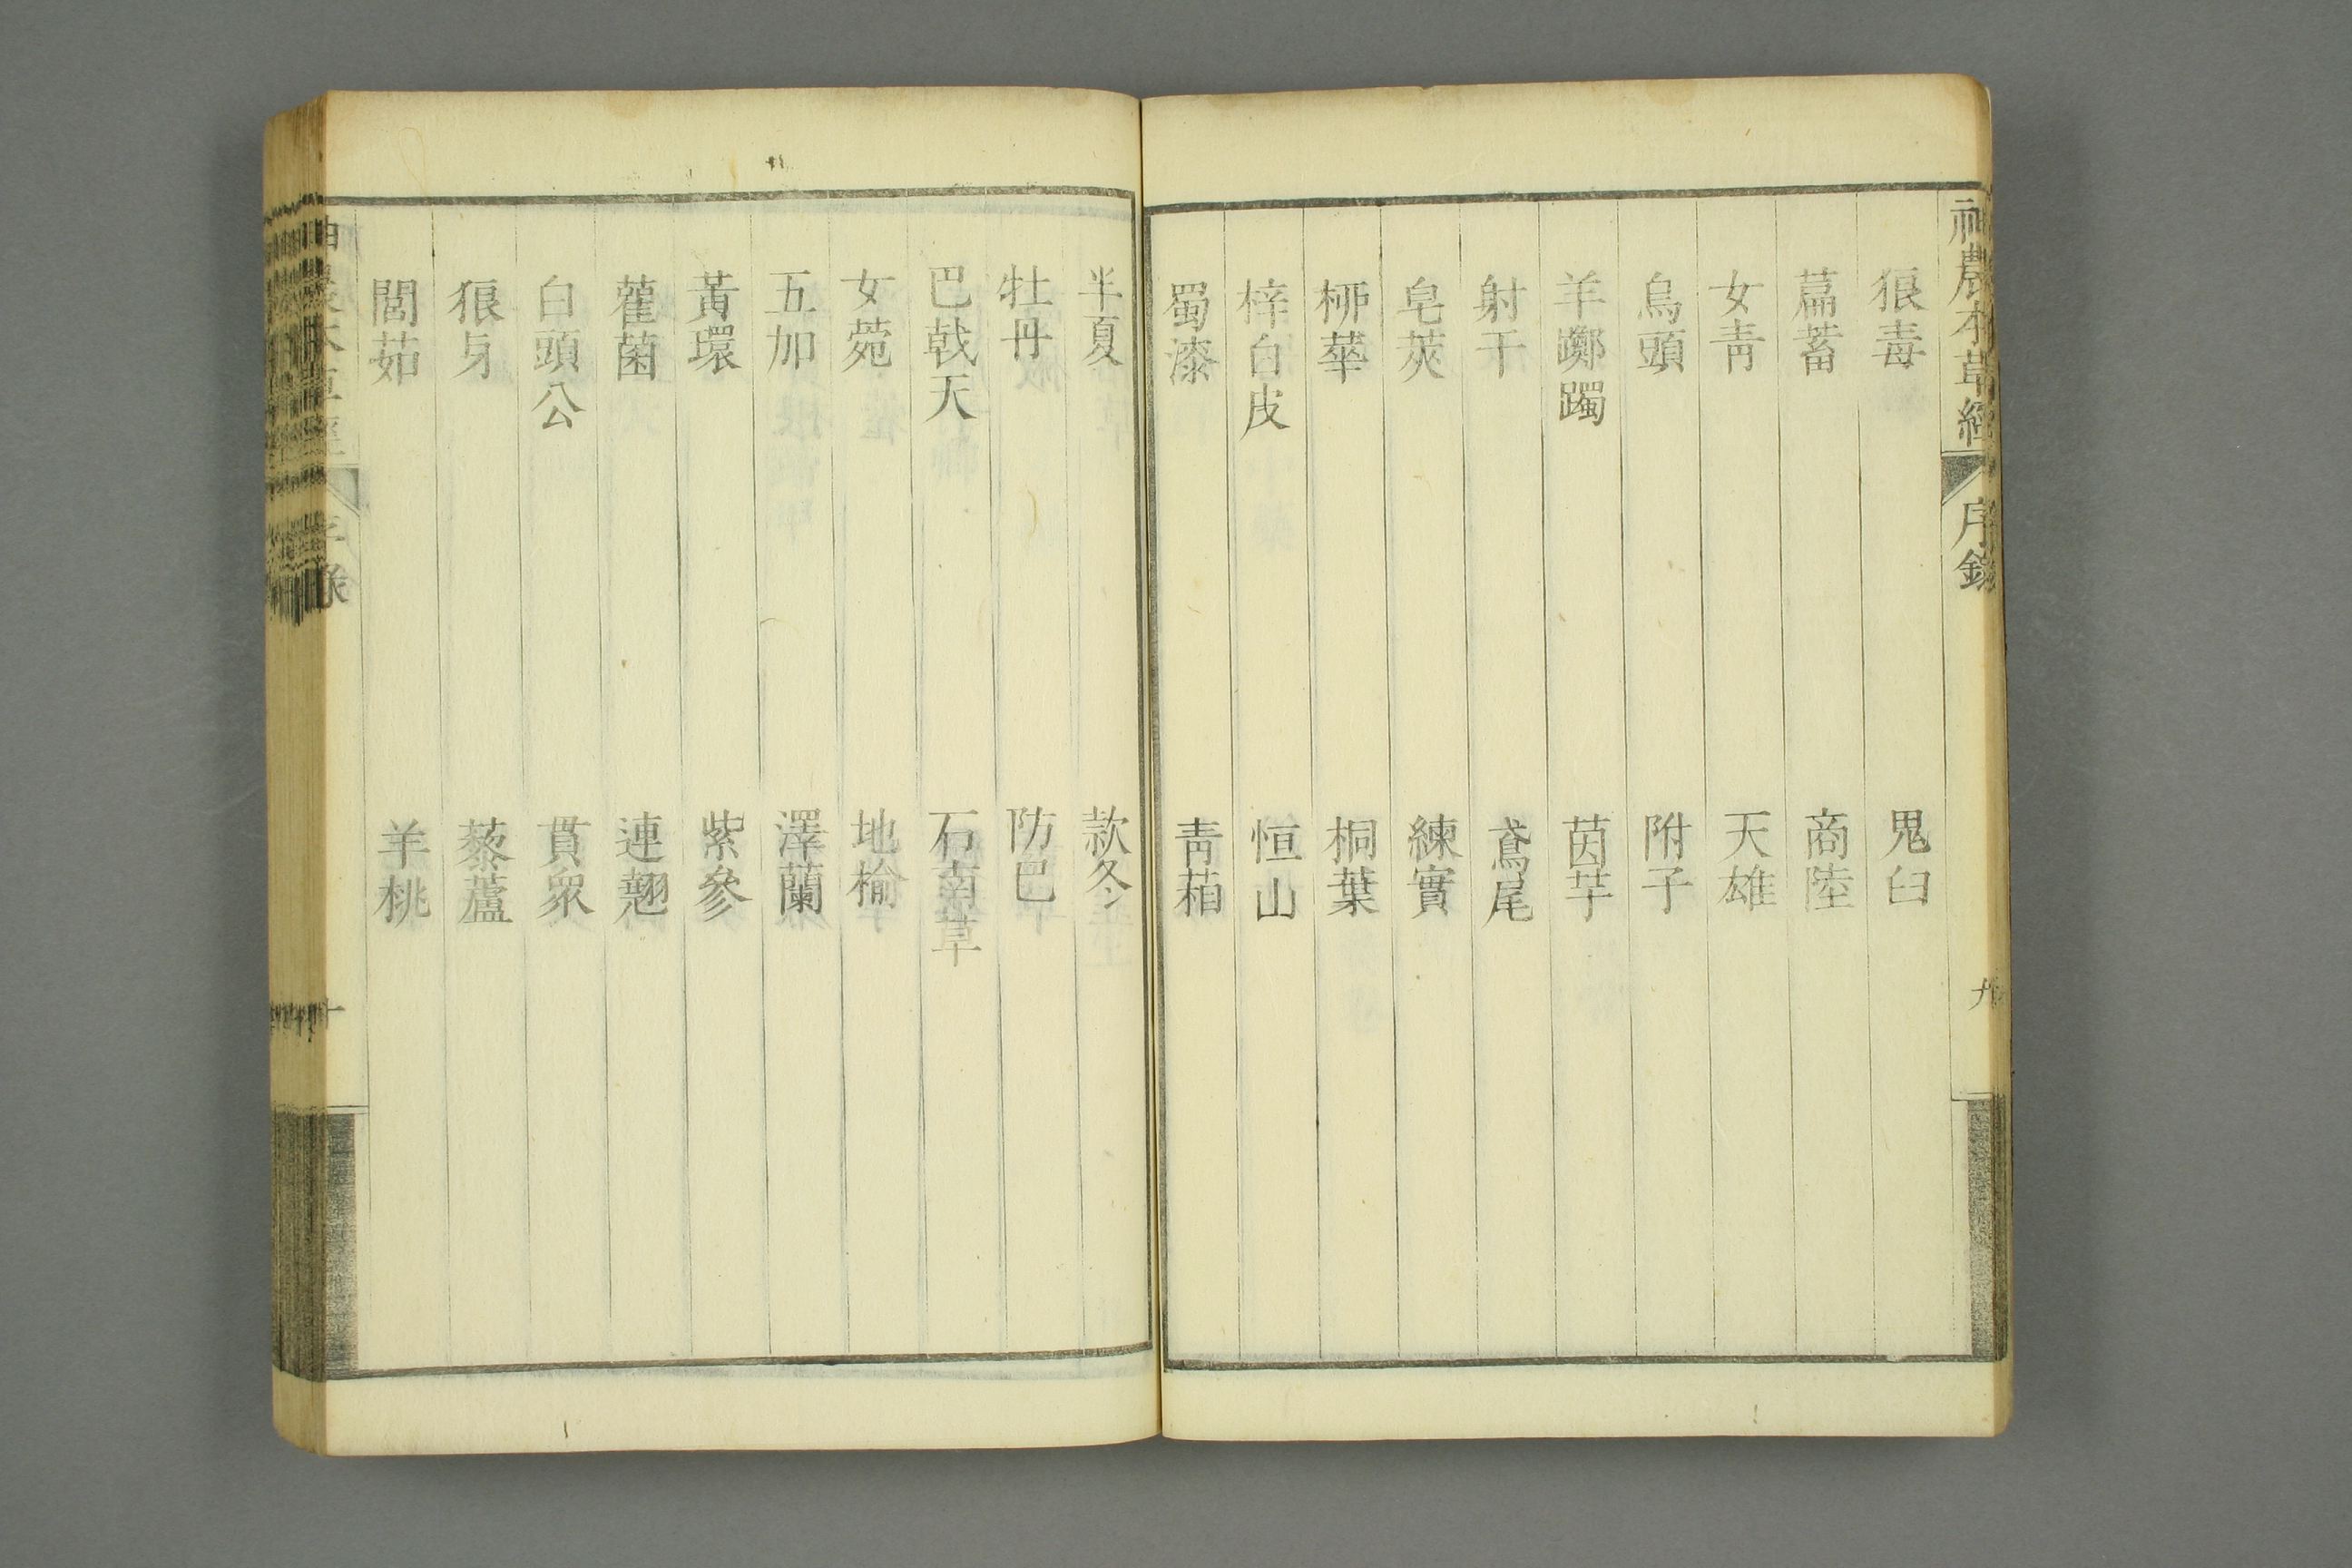 神農本草經 序錄 九
狼毒 鬼臼
萹蓄 商陸
女青 天雄
烏頭 附子
羊躑躅 茵芋
射干 鳶尾
皂莢 練實
桺華 桐葉
梓白皮 恒山
蜀漆 青葙
半夏 款冬
牡丹 防巳
巴戟天 石南草
女菀 地榆
五加 澤蘭
黃環 紫參
雚菌 連翹
白頭公 貫眾
狼牙 藜蘆
閭茹 羊桃